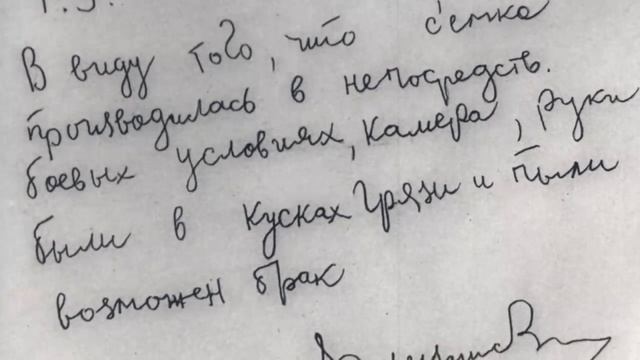 В виду того, что съёмка
производилась в непосредств.
боевых условиях, камера, руки
были в кусках грязи и пыли
возможен брак